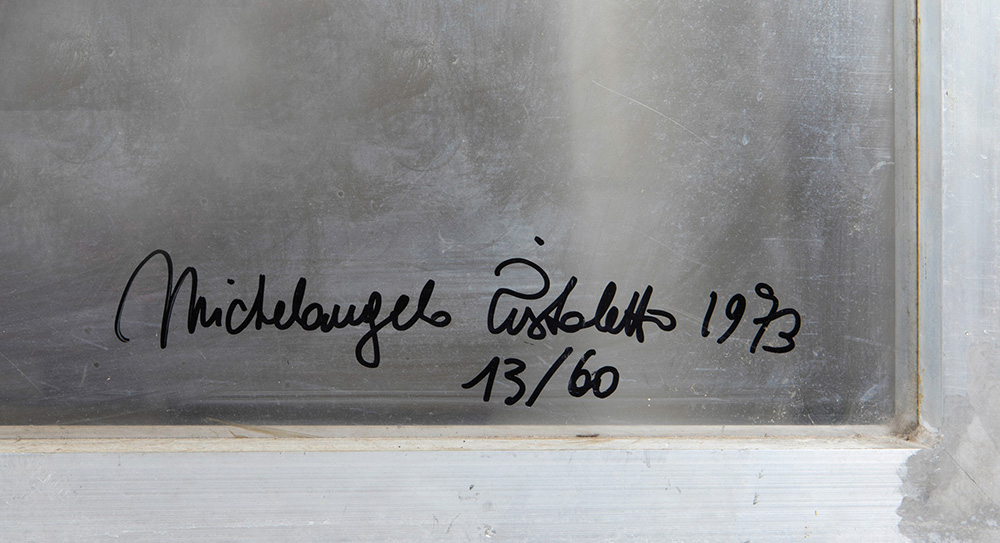 Michelangelo Pistoletto 1973
13/60